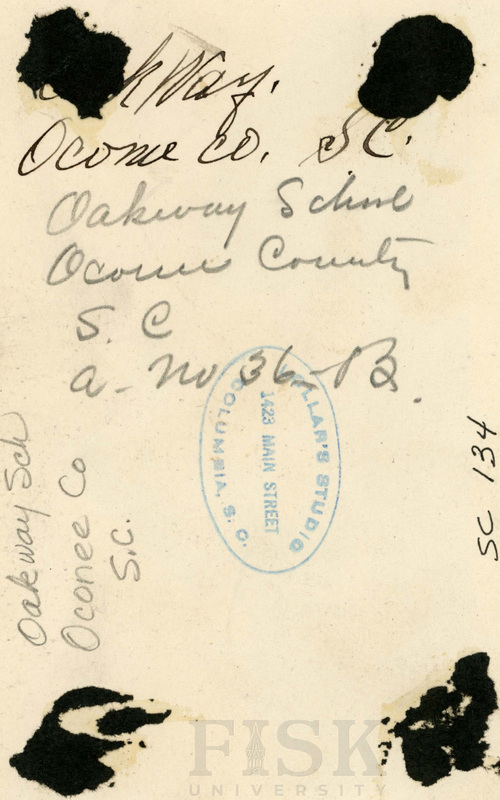 Way.
Oconee Co. S.C.
Oakway School
Oconee County
S. C
a - no 36 - B.
COLUMBIA, S. C.
1423 MAIN STREET
STUDIO
Oakway Sch
Oconee Co
S.C.
SC 134
FISK
UNIVERSITY